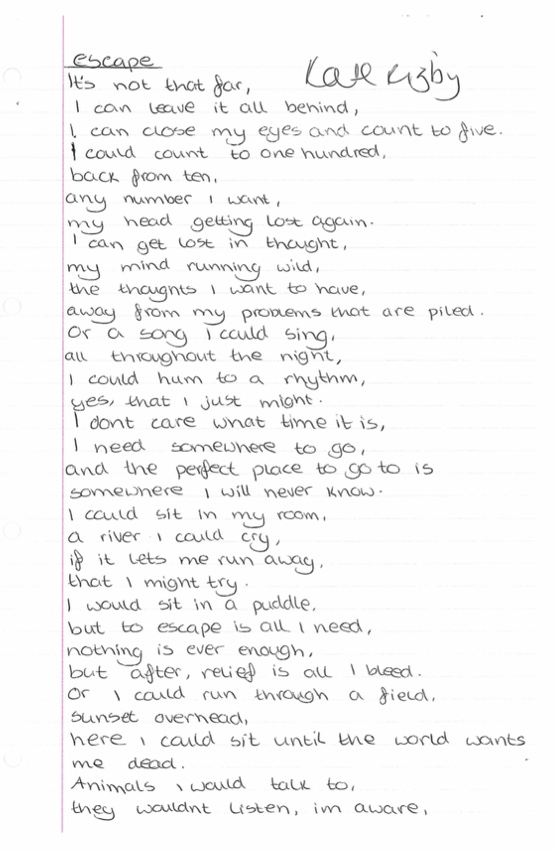 escape
Kate Rizby
It's not that far,
I can leave it all behind,
I can close my eyes and count to five.
I could count to one hundred,
back from ten,
any number I want,
my head getting lost again.
I can get lost in thought,
my mind running wild,
the thougnts I want to have,
away from my problems that are piled.
Or a song I could sing,
all throughout the night,
I could hum to a rhythm,
yes, that I just might.
I dont care what time it is,
I need somewhere to go,
and the perfect place to go to is
somewhere I will never know.
I could sit in my room,
a river I could cry,
if it lets me run away,
that I might try.
I would sit in a puddle,
but to escape is all I need,
nothing is ever enough,
but after, relief is all I bleed.
Or I could run through a field,
sunset overhead,
here I could sit until the world wants
me dead.
Animals I would talk to,
they wouldnt listen, im aware,